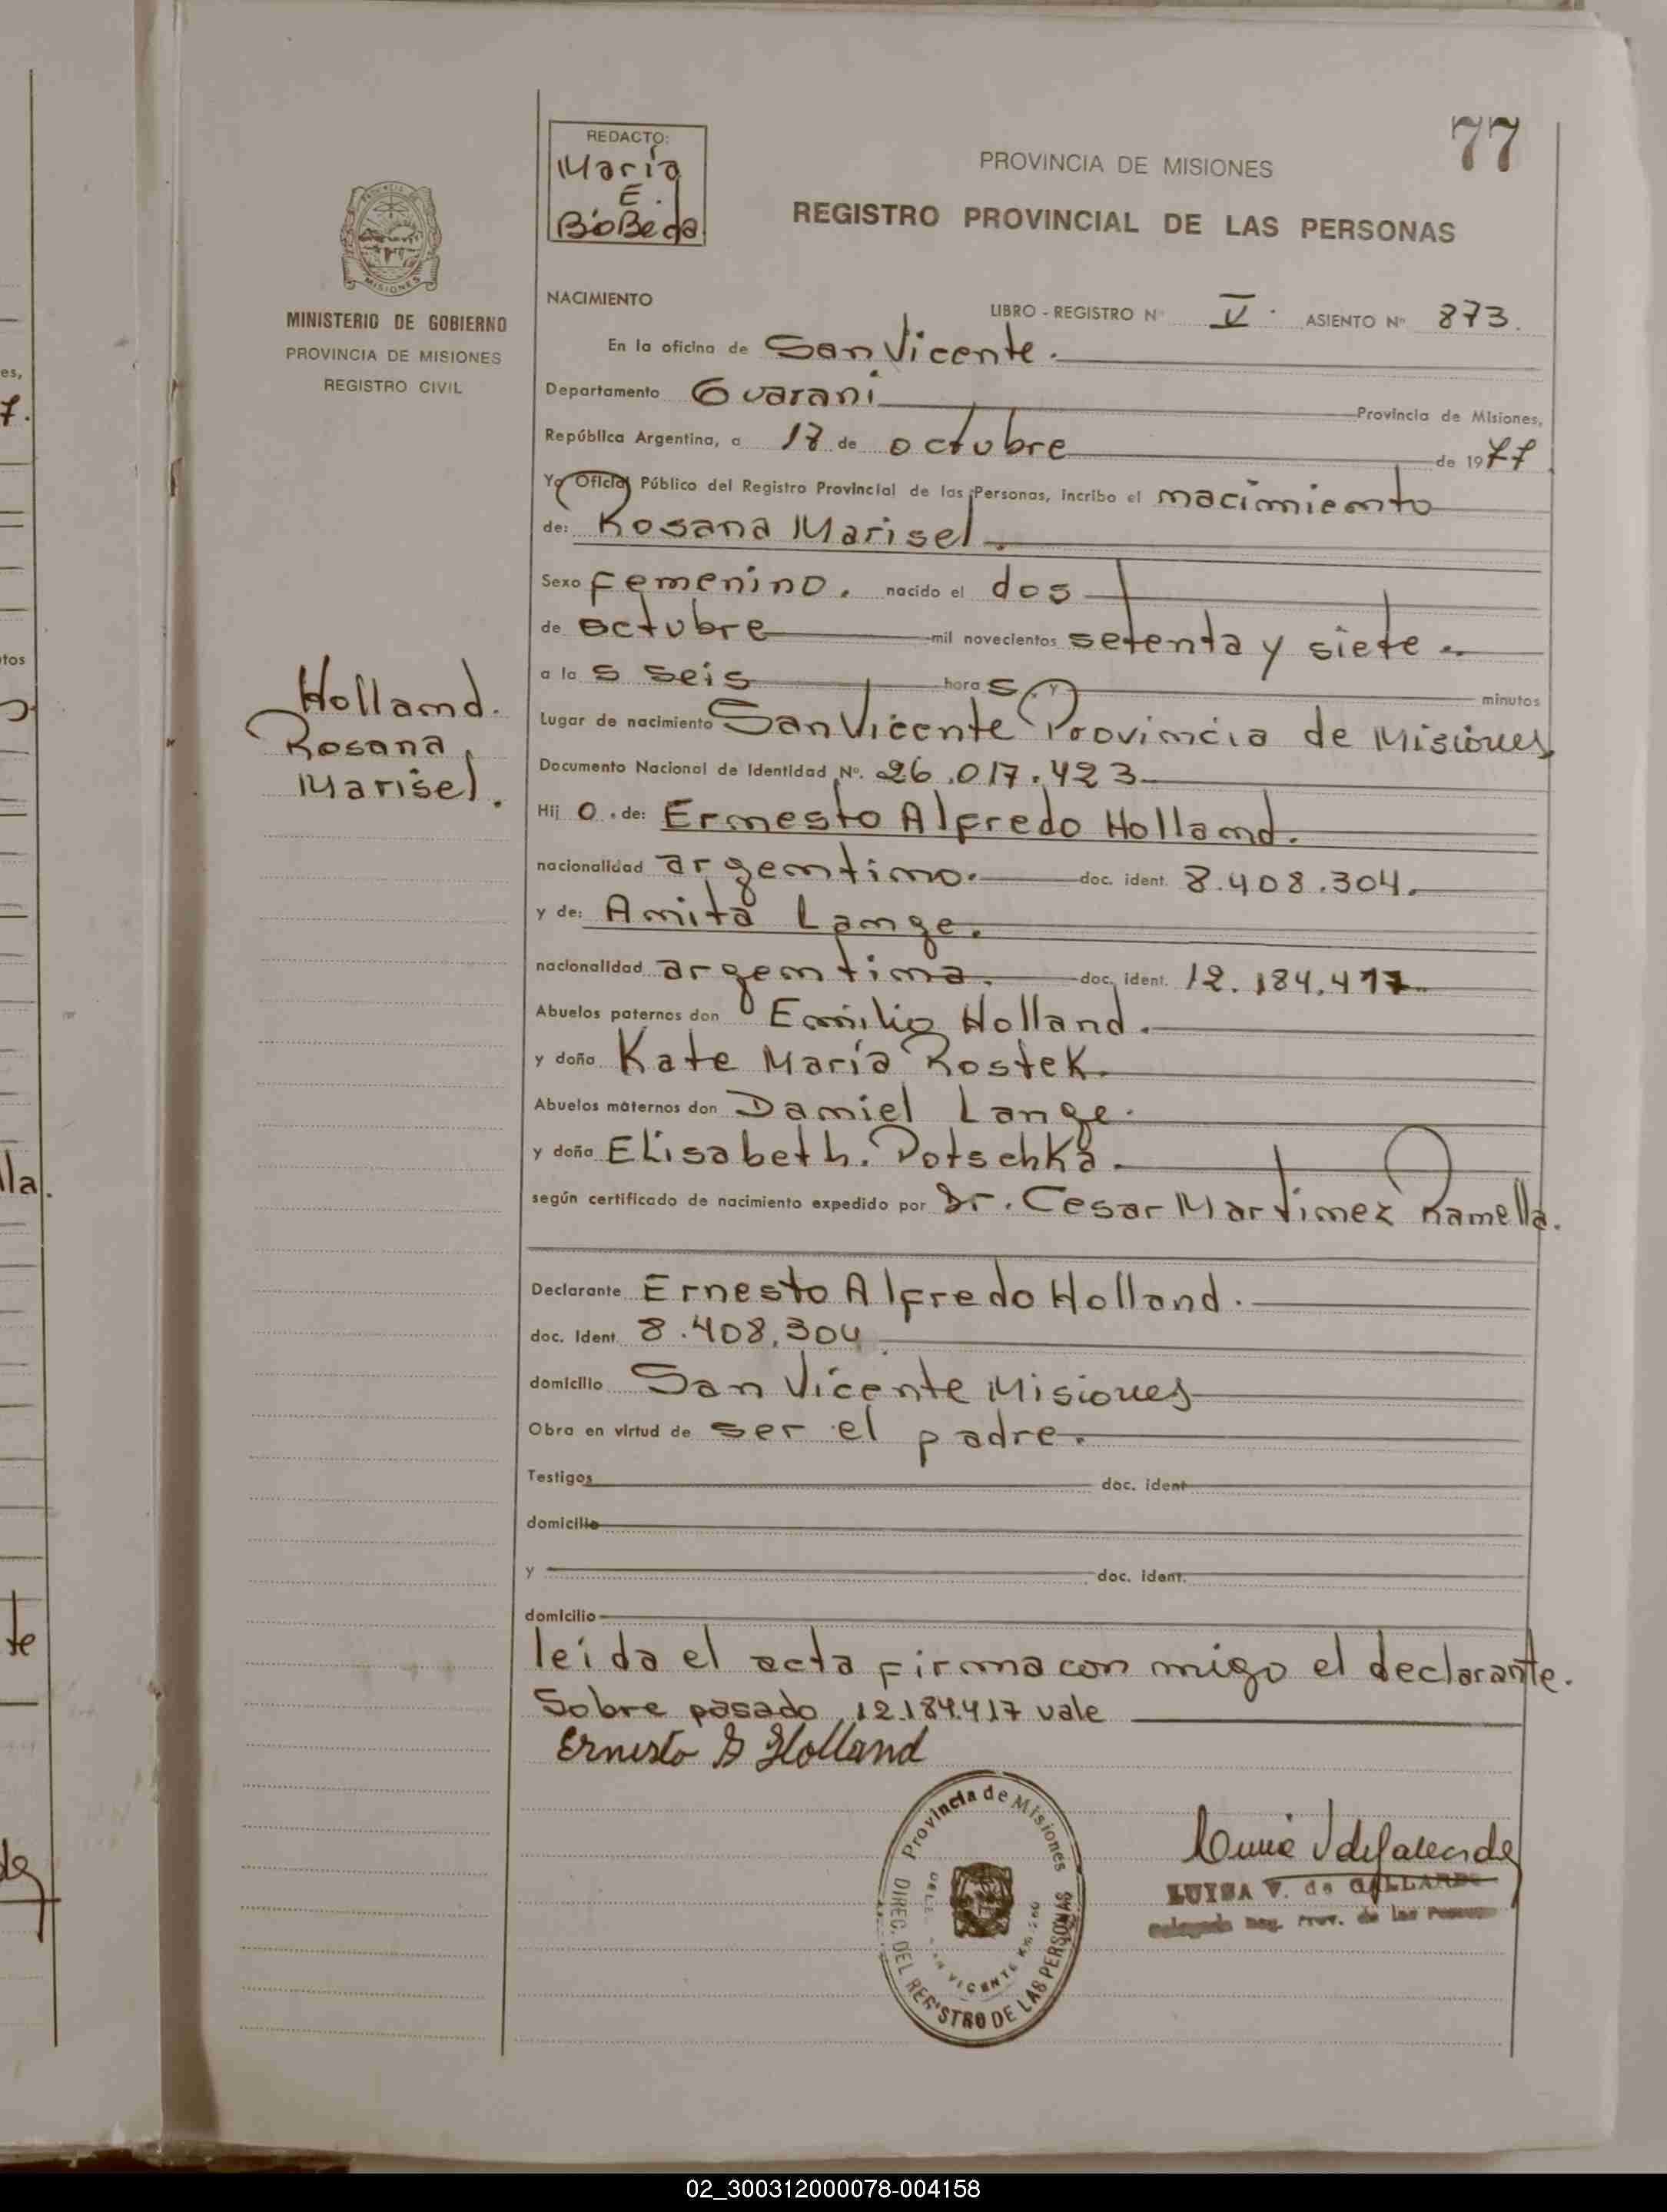 77
REDACTO:
María
E.
BioBeda
PROVINCIA DE MISIONES
REGISTRO PROVINCIAL DE LAS PERSONAS
MINISTERIO DE GOBIERNO
PROVINCIA DE MISIONES
REGISTRO CIVIL
NACIMIENTO
LIBRO - REGISTRO Nº V. ASIENTO Nº 873.
En la oficina de San Vicente.
Departamento Guarani Provincia de Misiones,
República Argentina, a 17 de octubre de 1977
Yo Oficial Público del Registro Provincial de las Personas, incribo el nacimiento
de: Rosana Marisel.
Sexo femenino. nacido el dos
de octubre mil novecientos setenta y siete
a la s seis hora s y minutos
Lugar de nacimiento San Vicente Provincia de Misiones
Documento Nacional de Identidad Nº. 26.017.423
Holland.
Rosana
Marisel.
Hij o . de: Ernesto Alfredo Holland.
nacionalidad argentino. doc. ident. 8.408.304.
y de: Anita Lange.
nacionalidad argentina. doc. ident. 12.184.417
Abuelos paternos don Emilio Holland.
y doña Kate María Rostek.
Abuelos maternos don Daniel Lange.
y doña Elisabeth. Potschka.
según certificado de nacimiento expedido por Dr. Cesar Martinez Ramella.
Declarante Ernesto Alfredo Holland.
doc. ident. 8.408.304
domicilio San Vicente Misiones
Obra en virtud de ser el padre.
Testigos doc. ident
domicilio
y doc. ident.
domicilio
leída el acta firma con migo el declarante.
Sobre pasado 12.184.417 vale
Ernesto A Holland
Provincia de Misiones
DIREC. DEL REGISTRO DE LAS PERSONAS
VICENTE
LUISA V. de GALLARDO
Reg. Prov. de las Personas
es,
7.
tos
lla.
te
02_300312000078-004158